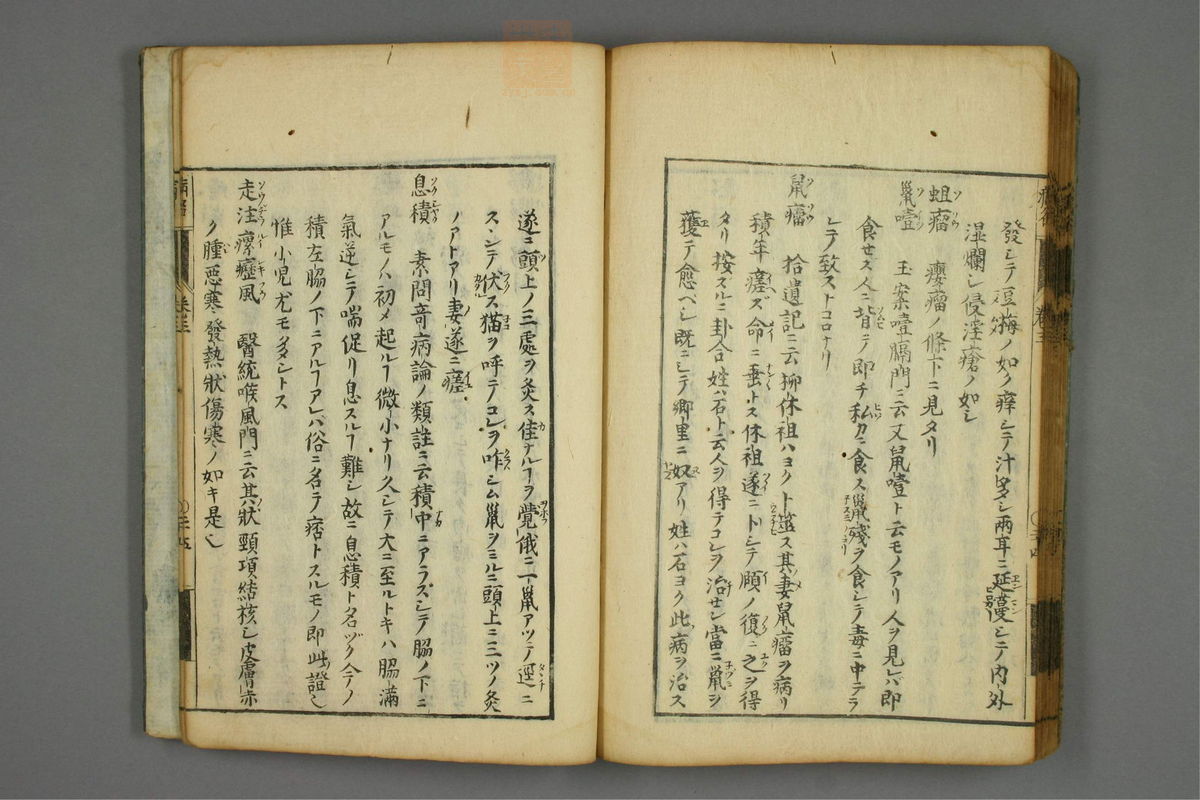 發シテ痘瘡ノ如ク痒シテ汁多シ兩耳ニ延蔓シテ内外
湿爛シ侵淫瘡ノ如シ
蛆瘤 癭瘤ノ條下ニ見タリ
鼠噎 玉案噎膈門ニ云又鼠噎ト云モノアリ人ヲ見レハ即
食セス人ニ背テ即チ私カニ食ス鼠殘ヲ食シテ毒ニ中テラ
レテ致ストコロナリ
鼠瘤 拾遺記ニ云柳休祖ハヨクト筮ス其妻鼠瘤ヲ病リ
積年瘥ズ命ニ垂トス休祖遂ニトシテ頤ノ復ニ之ヲ得
タリ按ズルニ卦合姓ハ石ト云人ヲ得テコレヲ治セシ當ニ鼠ヲ
獲テ愈ベシ既ニシテ郷里ニ奴アリ姓ハ石ヨク此病ヲ治ス
遂ニ頭上ノ三處ヲ灸ス佳ナルヿヲ覺俄ニ一鼠アツテ逕ニ
スヽンテ伏ス猫ヲ呼テコレヲ咋シム鼠ヲミルニ頭上ニ三ツノ灸
ノアトアリ妻遂ニ瘥
息積 素問奇病論ノ類註ニ云積中ニアラズシテ脇ノ下ニ
アルモノハ初メ起ルヿ微小ナリ久シテ大ニ至ルトキハ脇滿
氣逆シテ喘促リ息スルヿ難シ故ニ息積ト名ヅク今テノ
積左脇ノ下ニアルヿアレバ俗ニ名テ痞トスルモノ即此證也
惟小児尤モ多シトス
走注瘰癧風 醫統喉風門ニ云其状頸項結核シ皮膚赤
ク腫惡寒發熱状傷寒ノ如キ是也
卷三